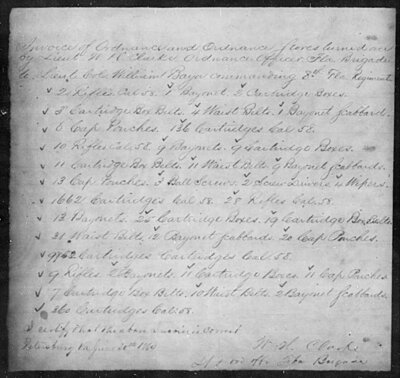 Invoice of Ordnance and Ordnance Stores turned over
by Lieut W. H. Clarke Ordnance Officer Fla Brigade
to Lieut Col. William Baya commanding 8th Fla Regiment
2 Rifles Cal. 58. 1 Bayonet. 2 Cartridge Boxes.
3 Cartridge Box Belts. 4 Waist Belts. 1 Bayonet Scabbard.
6 Cap Pouches. 136 Cartridges Cal. 58.
10 Rifles Cal. 58. 9 Bayonets. 9 Cartridge Boxes.
11 Cartridge Box Belts. 11 Waist Belts 9 Bayonet Scabbards.
13 Cap Pouches. 3 Ball Screws. 2 Screw Drivers. 4 Wipers.
1662 Cartridges Cal. 58. 28 Rifles Cal. 58.
13 Bayonets. 25 Cartridge Boxes. 19 Cartridge Box Belts
31 Waist Belts. 12 Bayonet Scabbards. 20 Cap Pouches.
Cartridges Cartridges Cal. 58.
9 Rifles 2 Bayonets. 11 Cartridge Boxes. 11 Cap Pouches
7 Cartridge Box Belts. 10 Waist Belts. 2 Bayonet Scabbards.
360 Cartridges Cal. 58.
I certify that the above invoice is correct
Petersburg Va June 30th 1864
W. H. Clarke
Lt &amp; Ord Off Fla Brigade